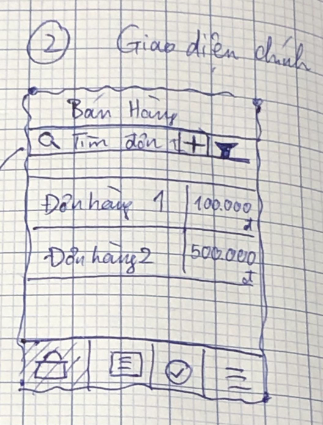 2 Giao diện chính
Bán Hàng
Tìm đơn
Đơn hàng 1 100.000
đ
Đơn hàng 2 500.000
đ